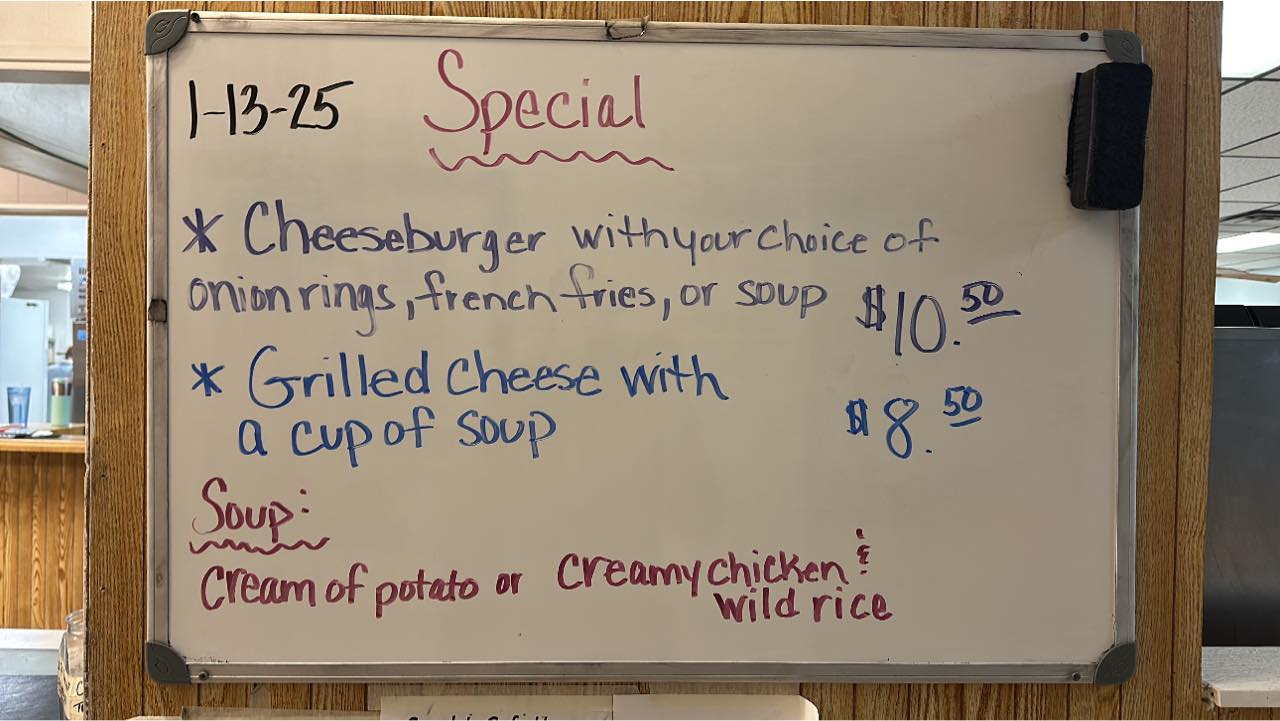 1-13-25 Special
* Cheeseburger with your choice of
onion rings, french fries, or soup $10.50
* Grilled Cheese with
a cup of soup $8.50
Soup:
Cream of potato or Creamy chicken &
wild rice